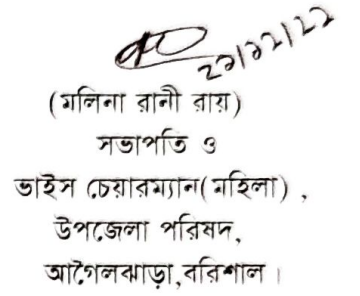 ২১/১২/২২
(মলিনা রানী রায়)
সভাপতি ও
ভাইস চেয়ারম্যান(মহিলা) ,
উপজেলা পরিষদ,
আগৈলঝাড়া,বরিশাল।